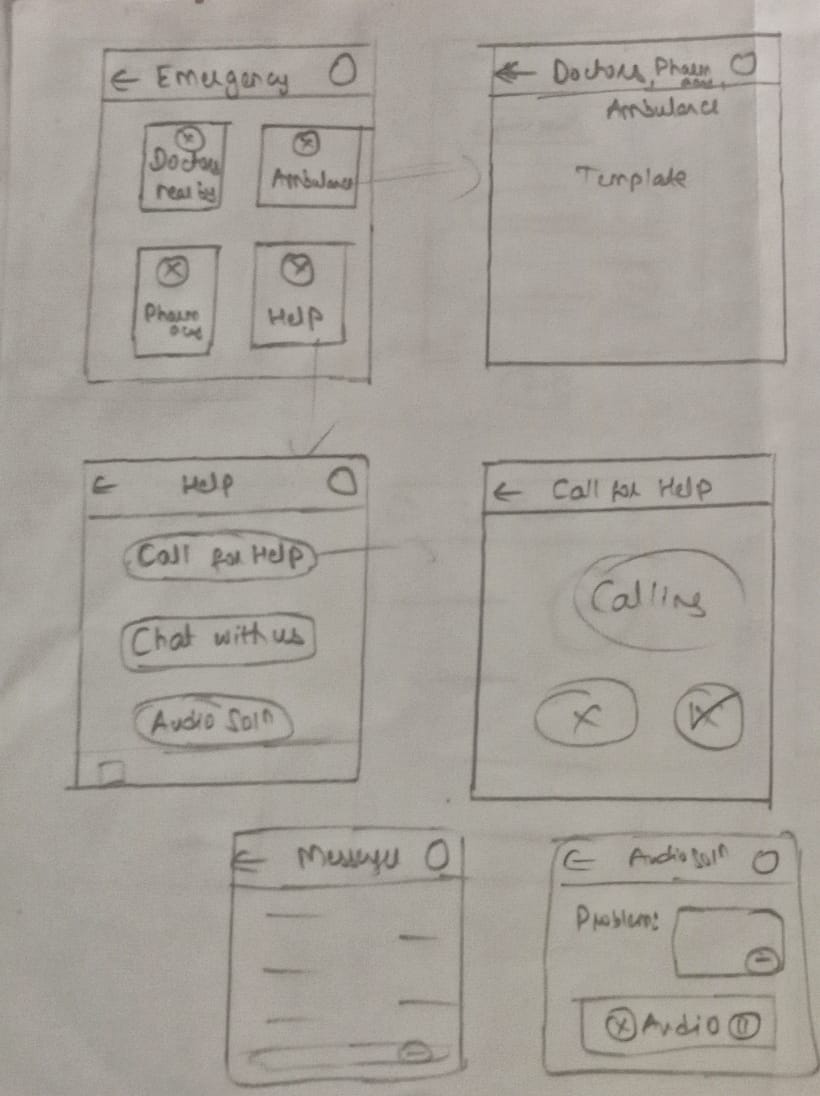 Emergency
Doctors
near by
Ambulance
Pharm
acy
Help
Doctors, Pharm
acy,
Ambulance
Template
Help
Call for Help
Chat with us
Audio Soln
Call for Help
Calling
Messages
Audio Soln
Problem:
Audio